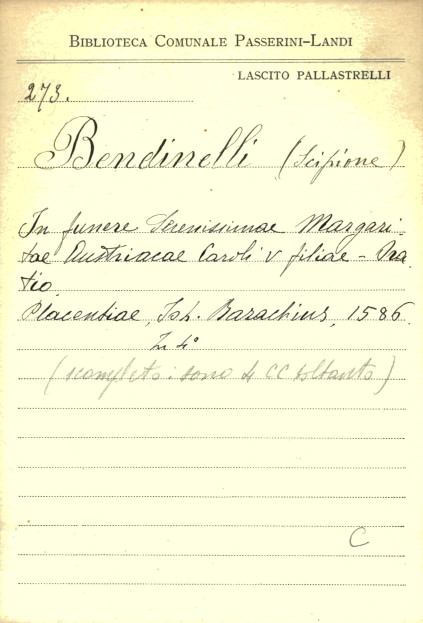 BIBLIOTECA COMUNALE PASSERINI-LANDI
LASCITO PALLASTRELLI
273.
Bendinelli (Scipione)
In funere Serenissimae Margari-
tae Austriacae Caroli V filiae - Ora-
tio
Placentiae, Joh. Barachius, 1586.
In 4°
(scompleto: sono 4 CC soltanto)
C